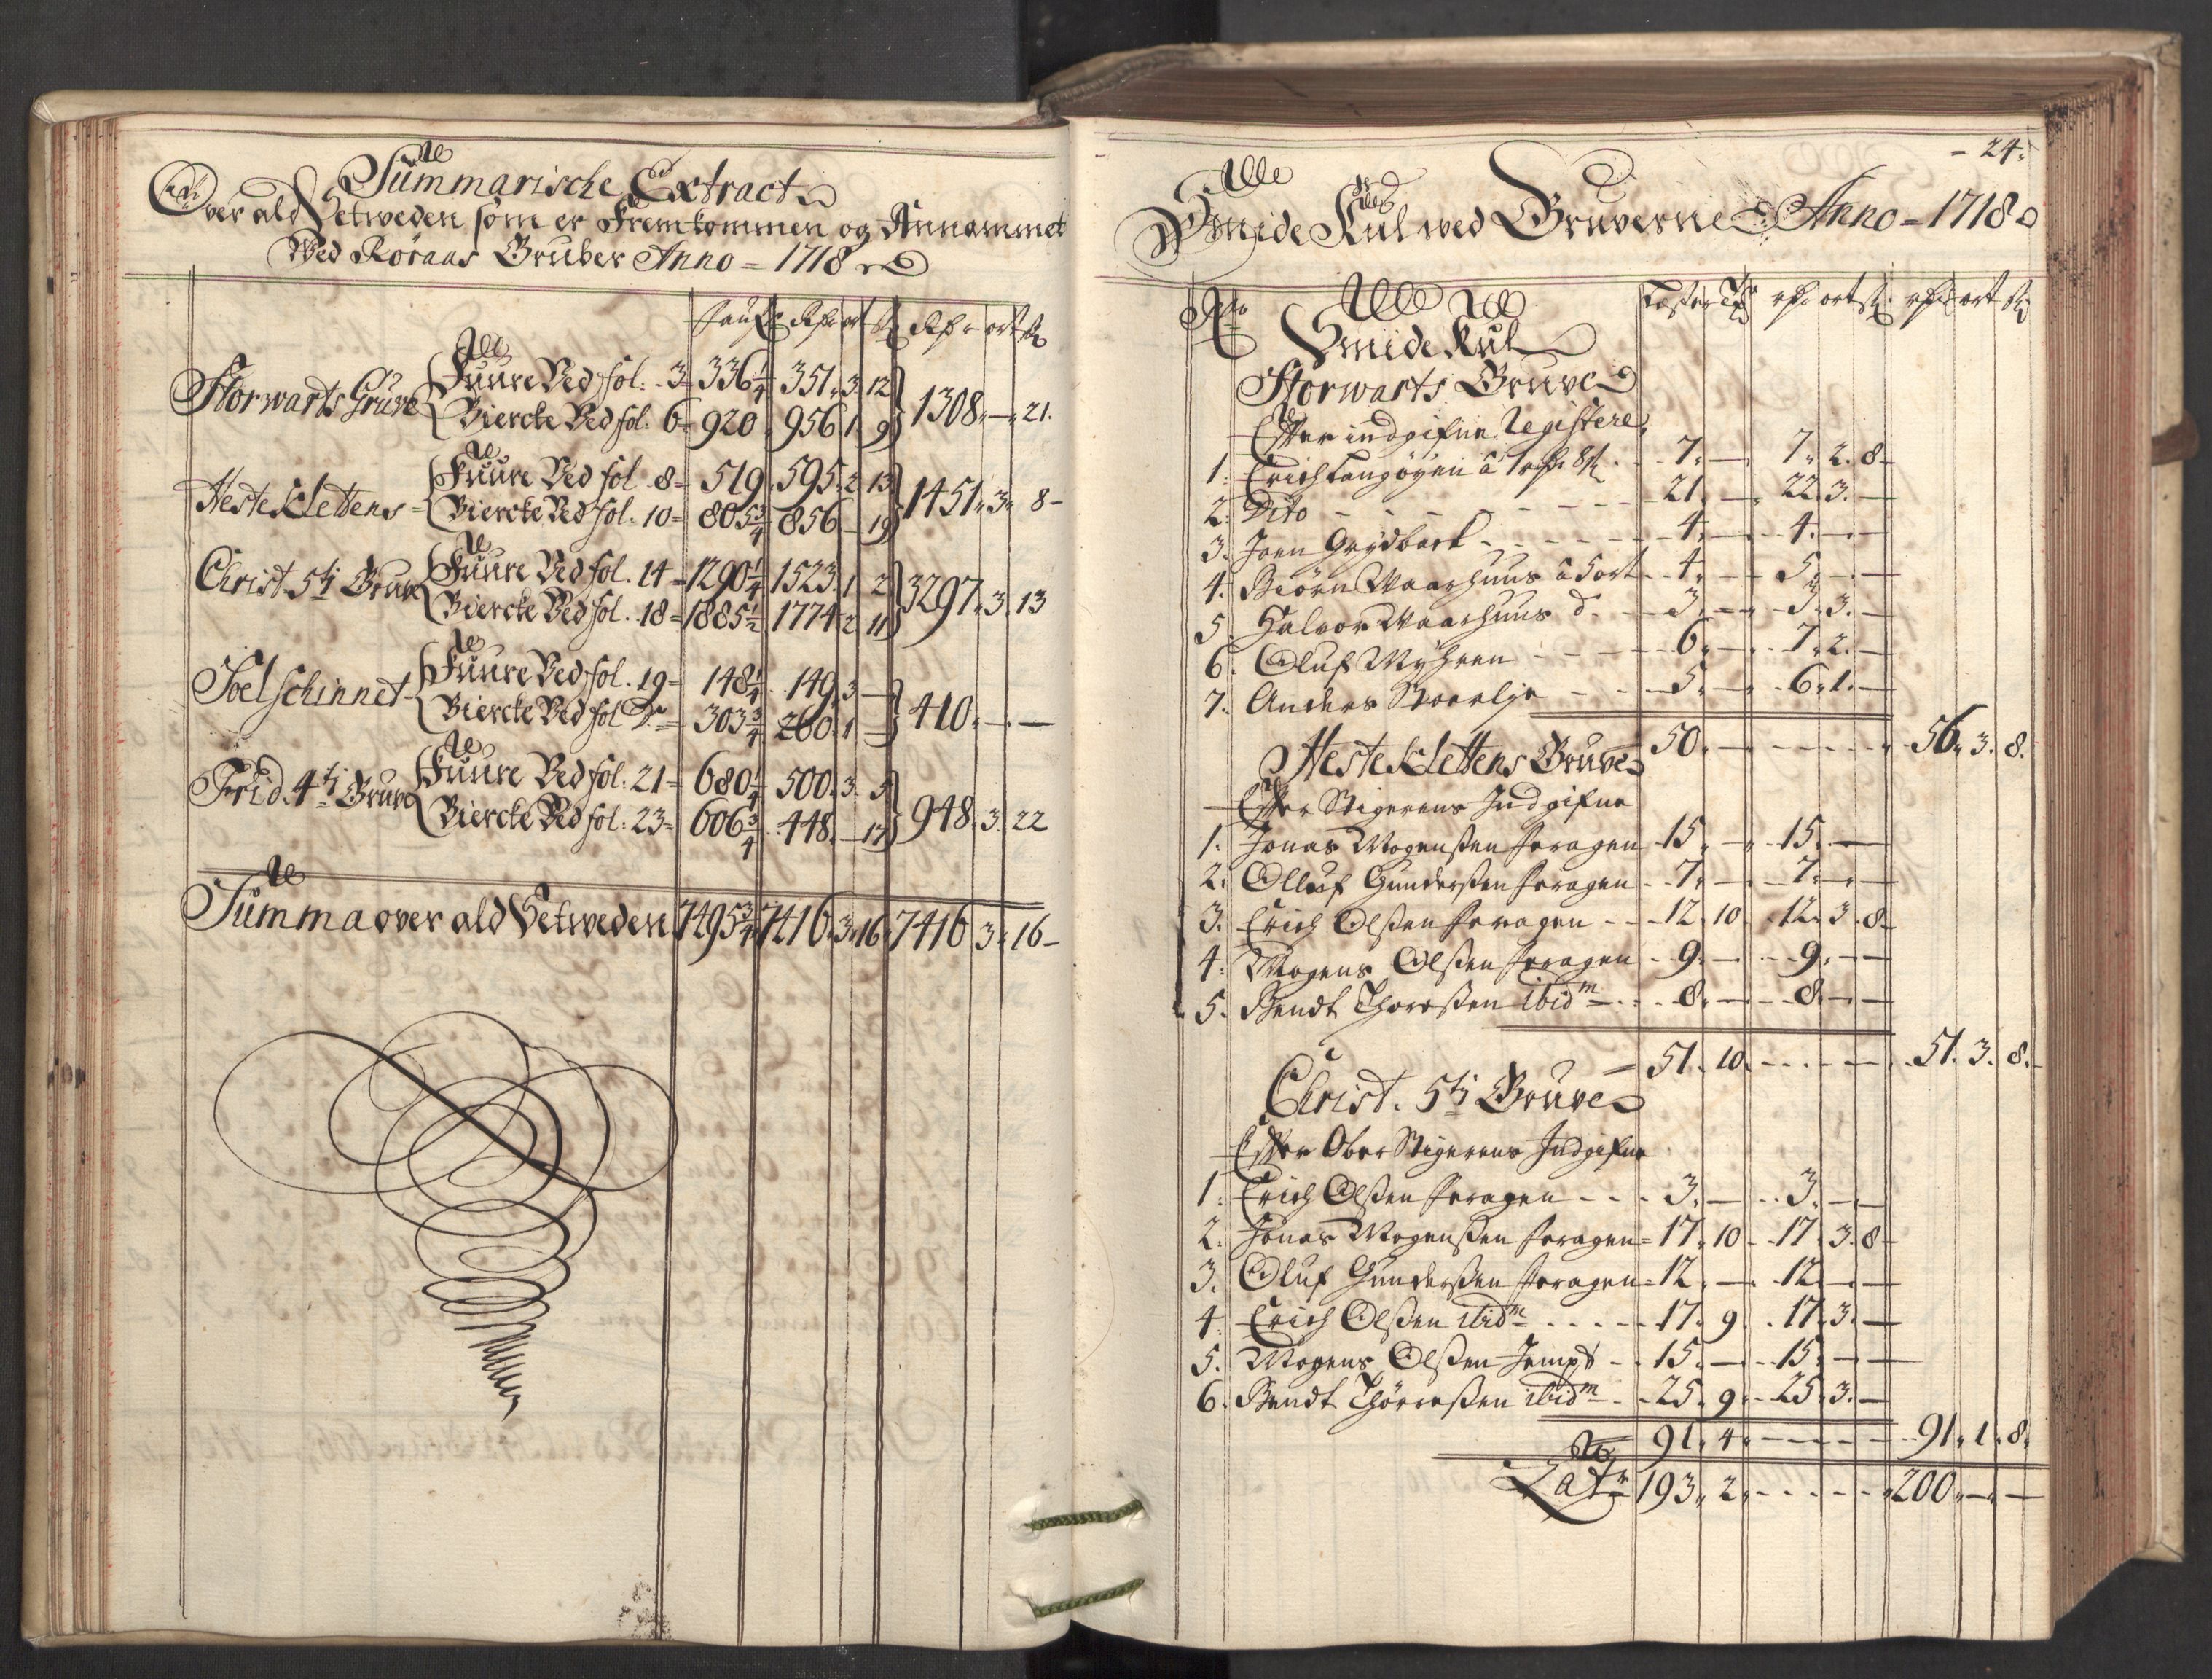 Summarische Extract
Over ald Setweden som er Fremkommen og Annammet
Wed Röraas Gruber Anno = 1718
Rdr ort ß Rdr ort ß
Storwarts Gruve Fuure Ved fol: 3 = 336 1/4 351 „ 3 12
Biercke Ved fol. 6 = 920 956 1 9 1308 „ — „ 21.
Hesteklettens = Fuure Ved fol 8 = 519 595 2 13
Biercke Ved fol. 10 = 805 3/4 856 — 19 1451 „ 3 „ 8 –
Christ. 5ti Gruve Fuure Ved fol. 14 = 1290 1/4 1523 1 2
Biercke Ved fol. 18 = 1885 1/2 1774 2 11 3297 „ 3 13
Soelschinnet Fuure Ved fol. 19 = 148 1/4 149 3 —
Biercke Ved fol Do = 303 3/4 260 1 — 410 — —
Frid. 4ti Gruve Fuure Ved fol. 21 = 680 1/4 500 3 5
Biercke Ved fol: 23 = 606 3/4 448 — 17 948 3 22
Summa over ald Setweden 7495 3/4 7416 „ 3 „ 16 7416 3 „ 16 –
– 24.
Smide Kul wed Gruverne Anno = 1718
No Læster Tr rdr ort ß rdr ort ß
Smide Kul
Storwarts Gruve
Efter indgifne Registere,
1. Erich Langøyen â 1 rdr 8 ß 7. — 7. 2. 8
2. Dito 21. — 22. 3. —
3. Joen Grydback 4. — 4. — —
4. Biörn Aaarhuus â 5 ort 4. — 5. — —
5. Halvor Aaarhuus d. 3. — 3. 3. —
6. Oluf Myhren 6. — 7. 2. —
7. Anders 5. — 6. 1. —
50. — 56. 3. 8.
Hesteklettens Gruve
Efter Stigerens Indgifne
1. Jonas Mogensen Foragen 15. — 15. — —
2. Olluf Gundersen Foragen 7. — 7. — —
3. Erich Olsen Foragen 12. 10. 12. 3. 8
4. Mogens Olsen Foragen 9. — 9. — —
5. Bendt Thoresen ibidm 8. — 8. — —
51. 10. 51. 3. 8.
Christ. 5ti Gruve
Efter Ober Stigerens Indgifne
1. Erich Olsen Foragen 3. — 3. — —
2. Jonas Mogensen Foragen = 17. 10 17. 3. 8
3. Oluf Gundersen Foragen = 12. — 12. — —
4. Erich Olsen ibidm 17. 9. 17. 3. —
5. Mogens Olsen Jempt 15. — 15. — —
6. Bendt Thörresen ibidm 25. 9. 25. 3. —
91. 4. 91. 1. 8.
Latr 193. 2. 200. — —